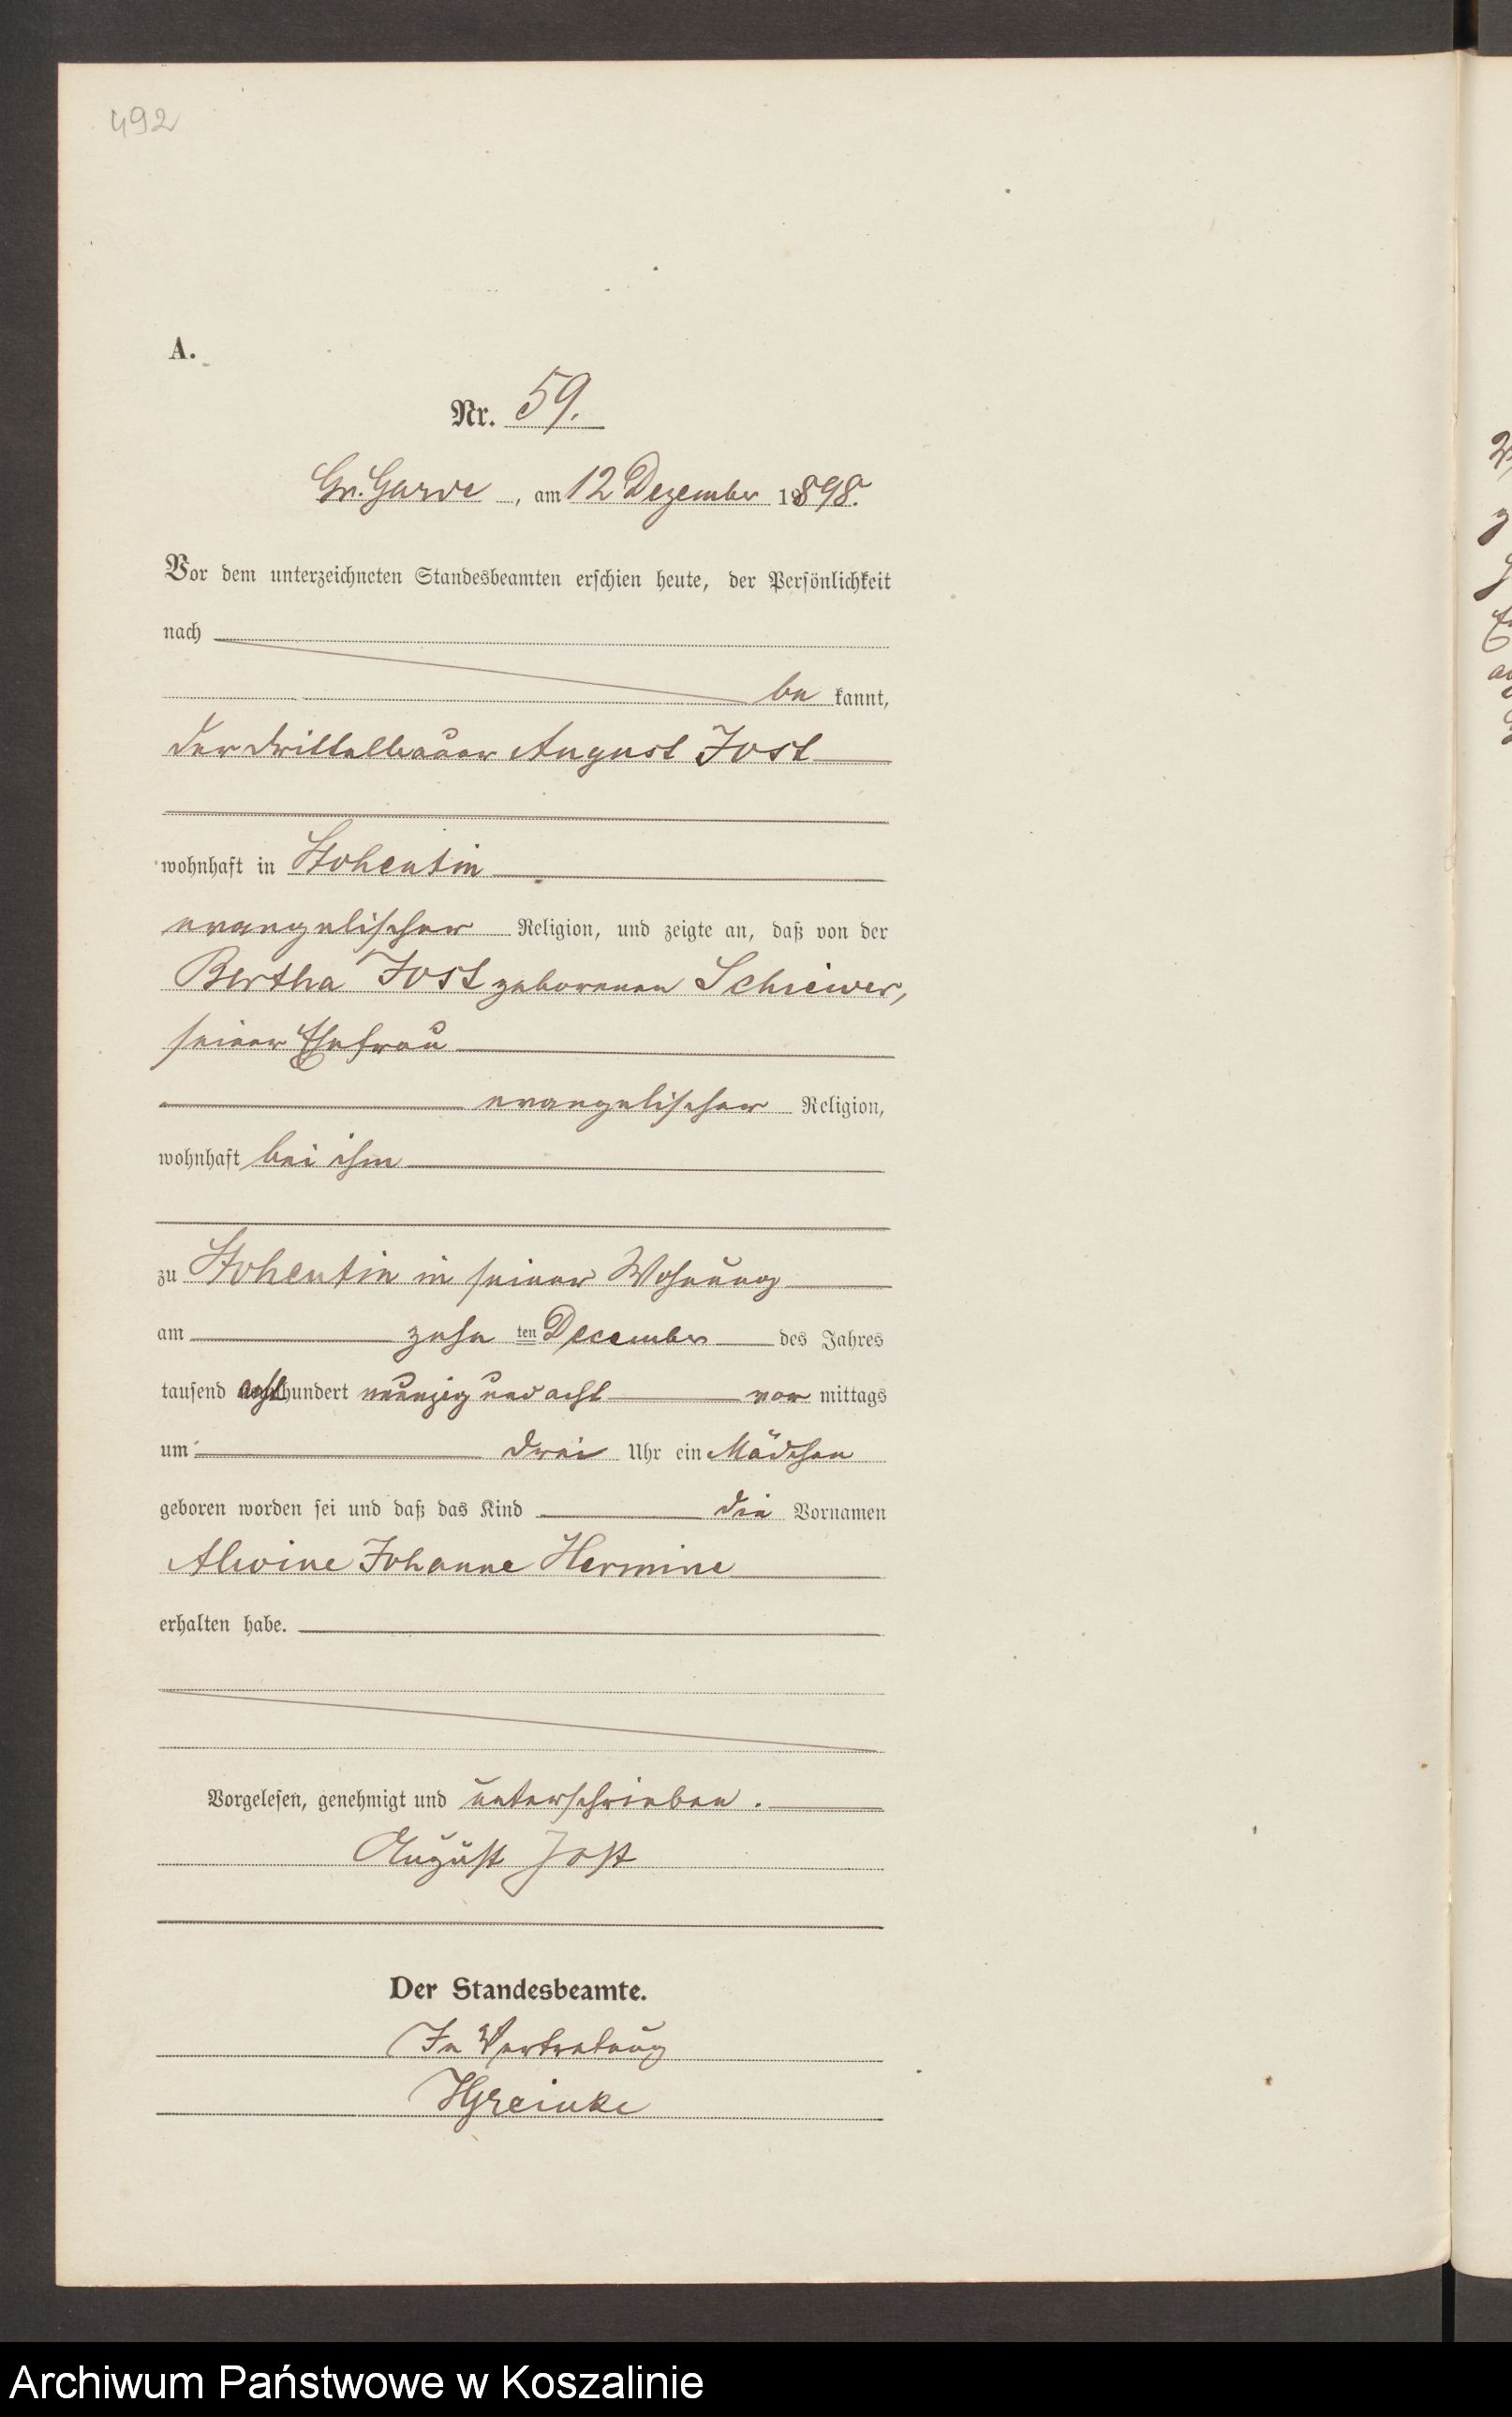 492
A.
Nr. 59.
Gr. Garde, am 12 Dezember 1898.
Vor dem unterzeichneten Standesbeamten erschien heute, der Persönlichkeit
nach
be kannt,
der Drittelbauer August Jost
wohnhaft in Stohentin
evangelischer Religion, und zeigte an, daß von der
Bertha Jost geborenen Schiewer,
seiner Ehefrau
evangelischer Religion,
wohnhaft bei ihm
zu Stohentin in seiner Wohnung
am zehn ten December des Jahres
tausend achthundert neunzig und acht vor mittags
um drei Uhr ein Mädchen
geboren worden sei und daß das Kind die Vornamen
Alwine Johanne Hermine
erhalten habe.
Vorgelesen, genehmigt und unterschrieben.
August Jost
Der Standesbeamte.
In Vertretung
Archiwum Państwowe w Koszalinie